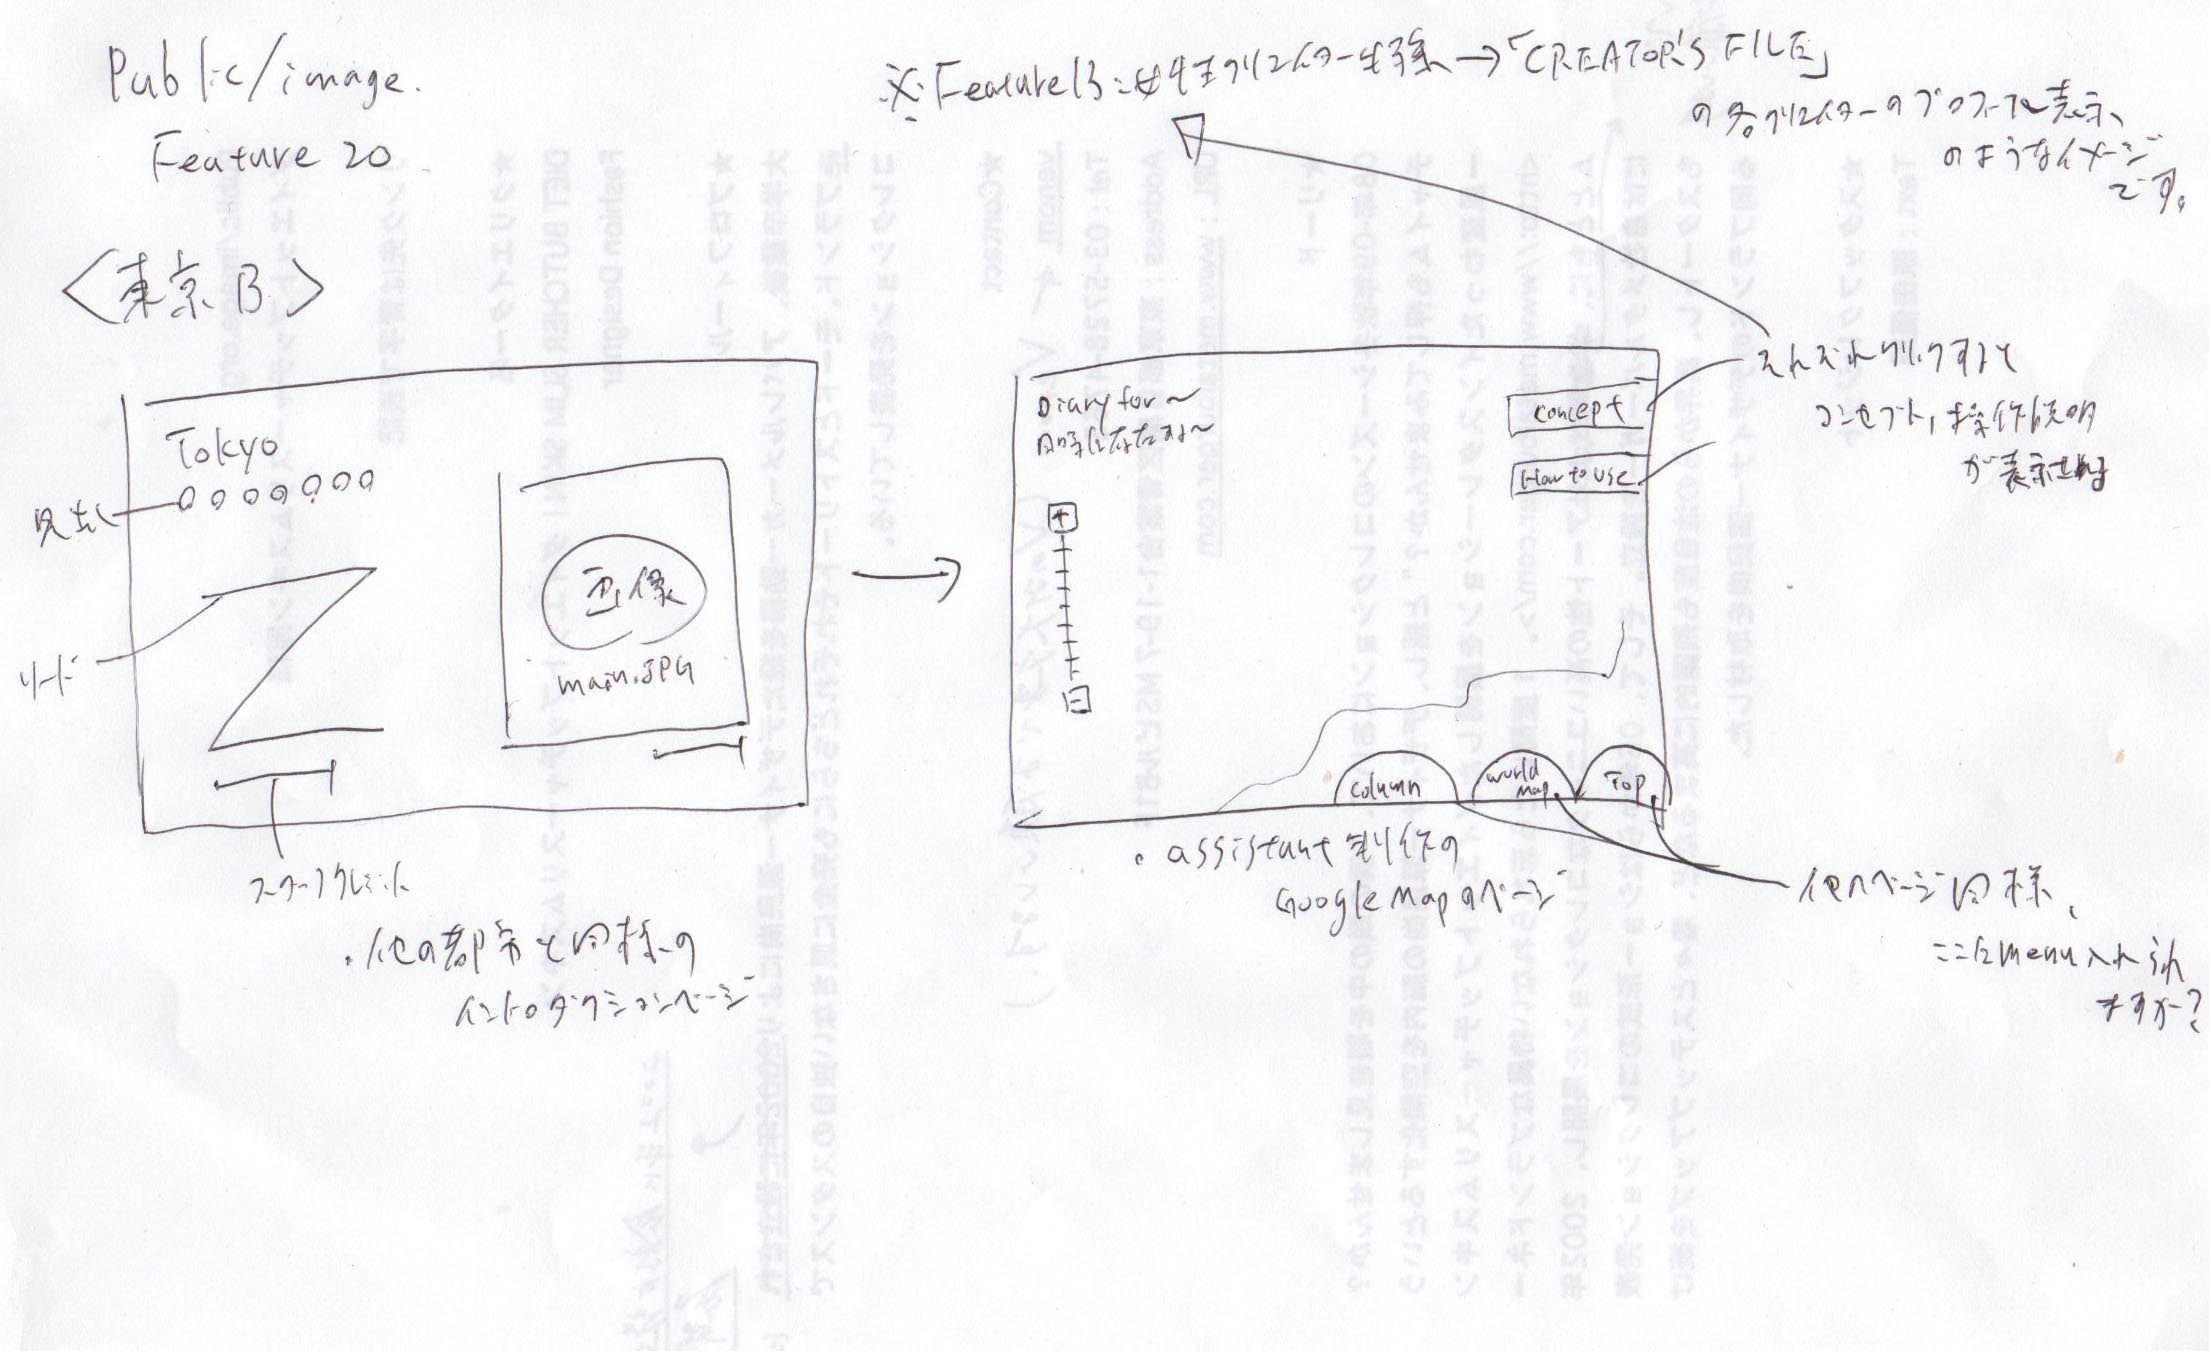 Public/image.
Feature 20
※Feature13:女性クリエイター特集→「CREATOR'S FILE」
の各クリエイターのプロフィール表示、
のようなイメージ
です。
<東京B>
Tokyo
○○○○○○○
見出し
リード
画像
main.JPG
スタッフクレジット
・他の都市と同様の
イントロダクションページ
Diary for～
concept
How to use
+
−
それぞれクリックすると
コンセプト、操作説明
が表示される
column
world
map
Top
・assistant制作の
Google Mapのページ
他ページ同様、
ここにmenu入れられ
ますか?